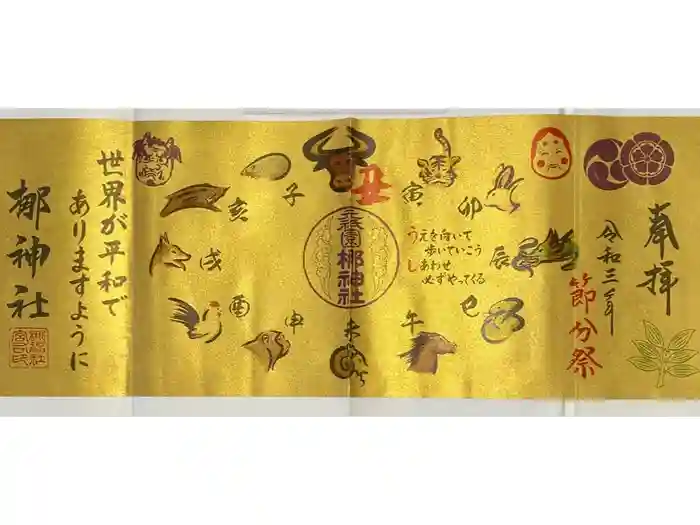 奉拝
令和三年
節分祭
丑
寅
卯
辰
巳
午
未
申
酉
戌
亥
子
うえを向いて
歩いていこう
しあわせ
必ずやってくる
元祇園梛神社
世界が平和で
ありますように
梛神社